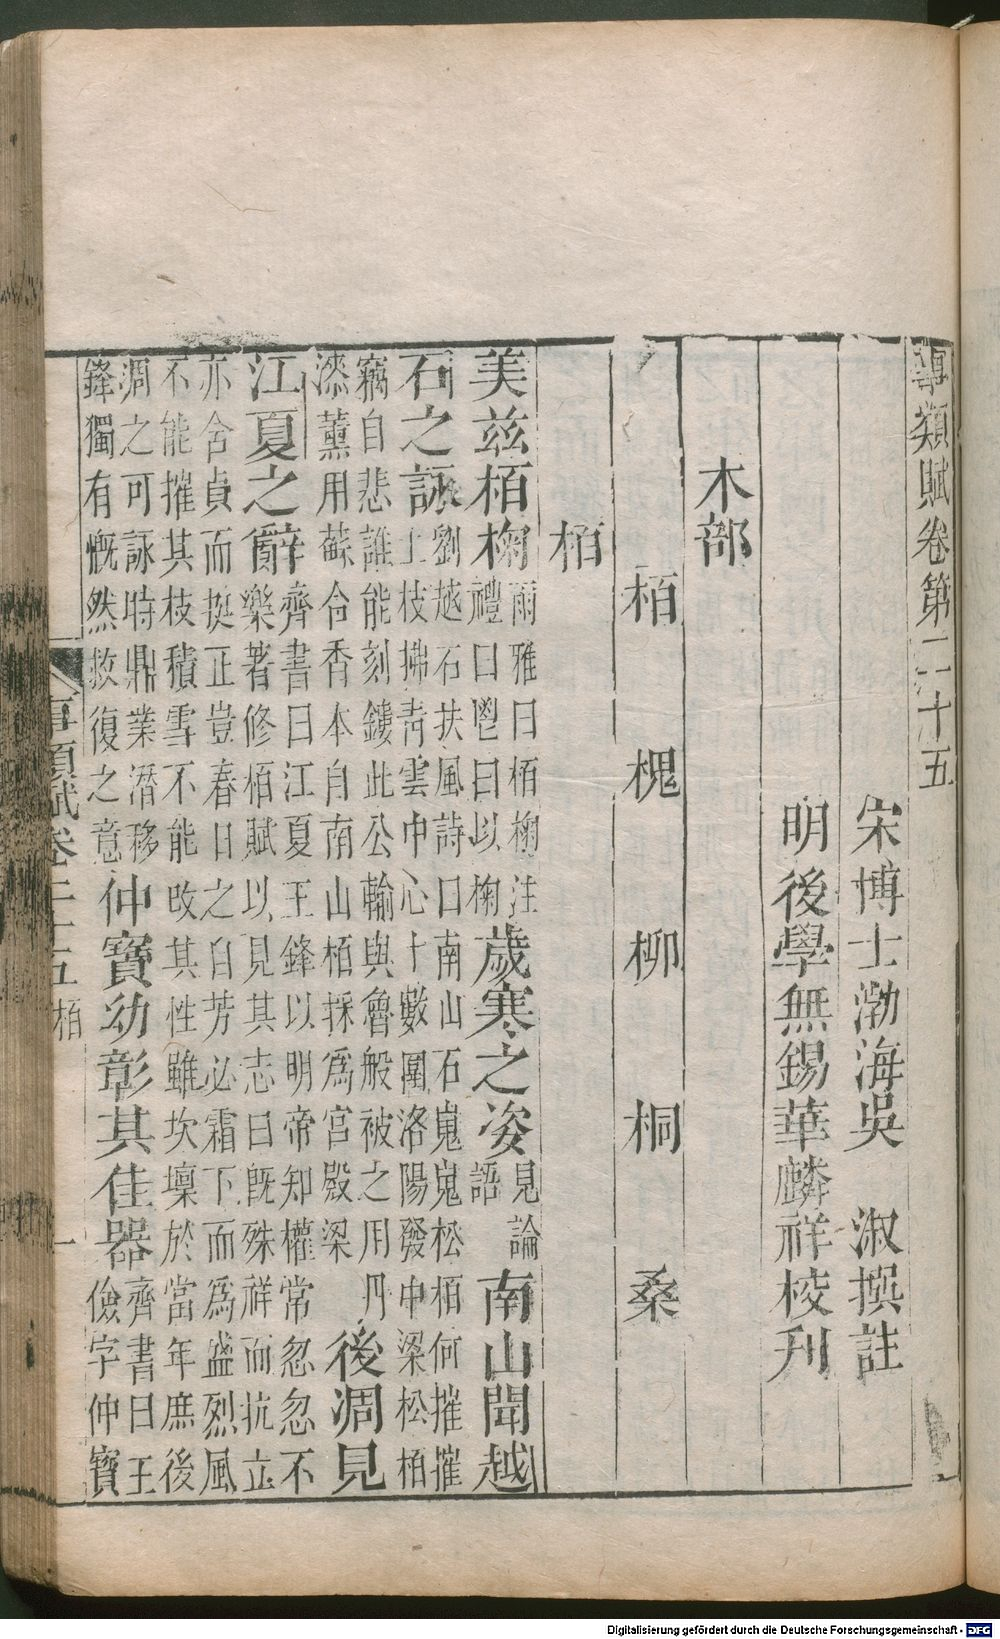 事類賦卷第二十五
宋博士渤海吳　淑撰註
明後學無錫華麟祥校刋
木部
栢　槐　柳　桐　桑
栢
美兹栢椈
爾雅曰栢椈注
禮曰鬯曰以椈
歲寒之姿
見論
語
南山聞越
石之詠
劉越石扶風詩曰南山石嵬嵬松栢何摧摧
上枝拂青雲中心十數圍洛陽發中梁松栢
竊自悲誰能刻鏤此公輸與魯般被之用丹
漆薰用蘇合香本自南山栢採爲宮殿梁
後凋見
江夏之辭
齊書曰江夏王鋒以明帝知權常忽忽不
樂著修栢賦以見其志曰旣殊祥而抗立
亦含貞而挺正豈春日之自芳必霜下而爲盛烈風
不能摧其枝積雪不能改其性雖坎壈於當年庶後
凋之可詠時鼎業潛移
鋒獨有慨然救復之意
仲寶幼彰其佳器
齊書曰王
儉字仲寶
事類賦卷二十五　栢　一
Digitalisierung gefördert durch die Deutsche Forschungsgemeinschaft - DFG